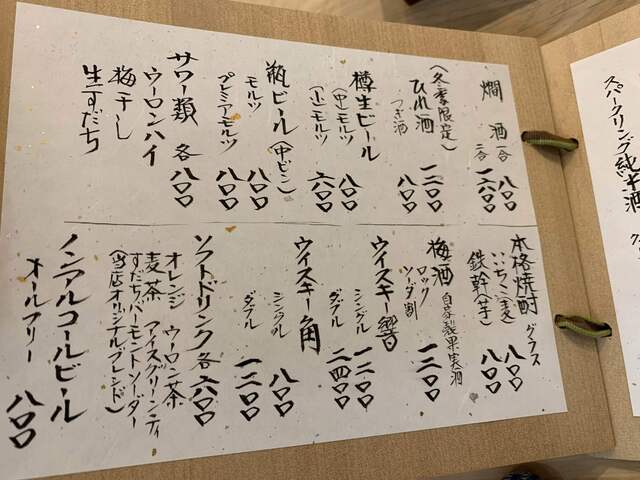 スパークリング純米酒
燗酒 一合 八〇〇
二合 一六〇〇
(冬季限定)
ひれ酒 一二〇〇
つぎ酒 八〇〇
樽生ビール
(中)モルツ 八〇〇
(小)モルツ 六〇〇
瓶ビール(中ビン)
モルツ 八〇〇
プレミアモルツ 八〇〇
サワー類 各八〇〇
ウーロンハイ
梅干し
生すだち
本格焼酎 グラス
いいちこ(麦) 八〇〇
鉄幹(芋) 八〇〇
梅酒 自家製果実酒
ロック
ソーダ割 一二〇〇
ウイスキー響
シングル 一二〇〇
ダブル 二四〇〇
ウイスキー角
シングル 八〇〇
ダブル 一二〇〇
ソフトドリンク 各六〇〇
オレンジ ウーロン茶
麦茶 アイスグリーンティ
すだちパーモントソーダー
(当店オリジナルブレンド)
ノンアルコールビール
オールフリー 八〇〇